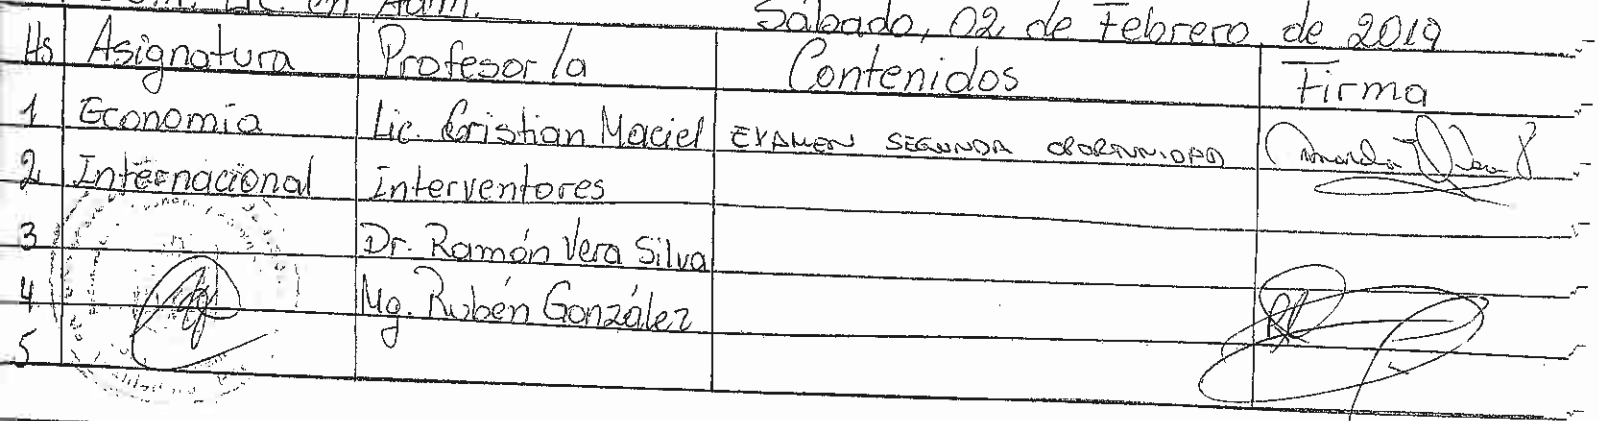 Lic. en Adm.
Sábado, 02 de Febrero de 2019
Hs Asignatura Profesor/a Contenidos Firma
1 Economía Lic. Cristian Maciel EXAMEN SEGUNDA OPORTUNIDAD
2 Internacional Interventores
3 Dr. Ramón Vera Silva
4 Mg. Rubén González
5